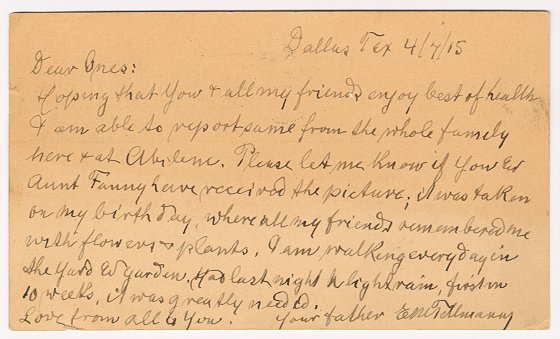 Dallas Tex 4/7/15
Dear Ones:
Hoping that You & all my friends enjoy best of health
I am able to report same from the whole family
here & at Abilene. Please let me know if You Ed
Aunt Fanny have received the picture; it was taken
on my birth day, where all my friends remembered me
with flowers & plants. I am walking every day in
the Yard Ed garden. Had last night a light rain, first in
10 weeks, it was greatly needed.
Love from all to You. Your father